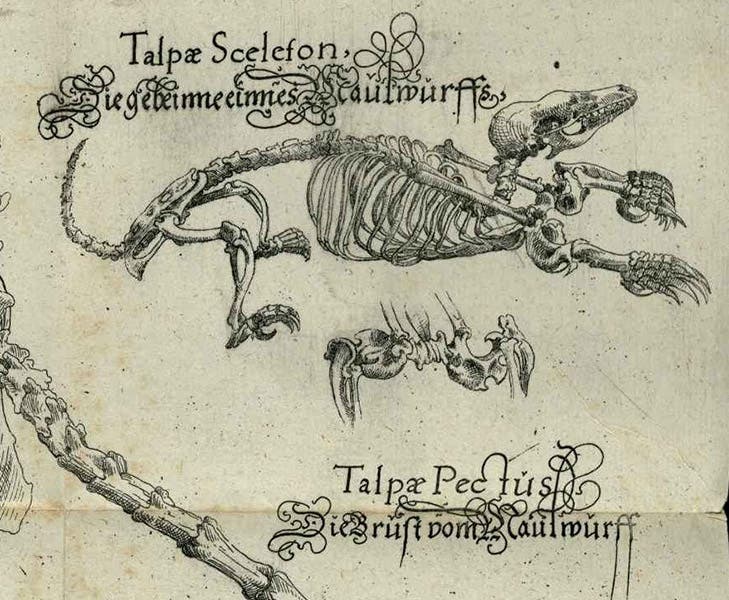 Talpæ Sceleton,
Die gebeinne einnes Maulwurffs,
Talpæ Pectus
Die Brust vom Maulwurff